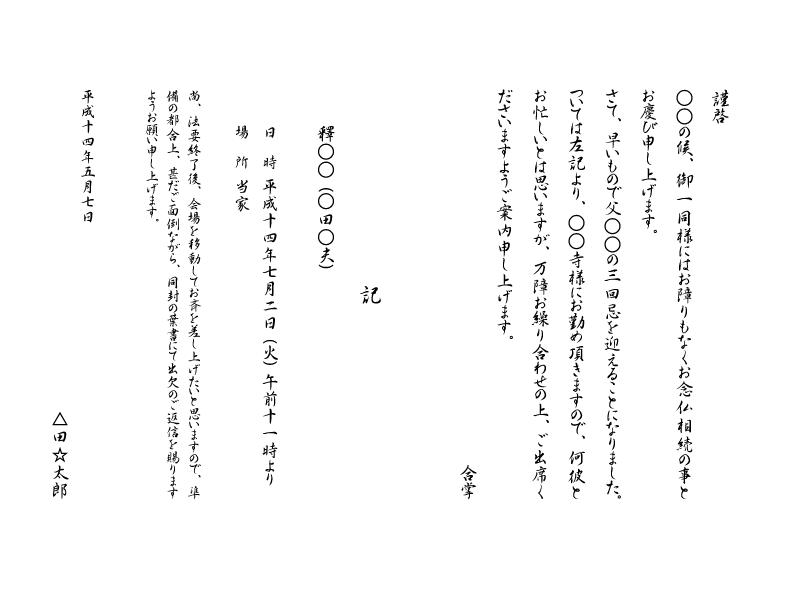 謹啓
〇〇の候、御一同様にはお障りもなくお念仏相続の事と
お慶び申し上げます。
さて、早いもので父〇〇の三回忌を迎えることになりました。
ついては左記より、〇〇寺様にお勤め頂きますので、何彼と
お忙しいとは思いますが、万障お繰り合わせの上、ご出席く
ださいますようご案内申し上げます。
合掌
記
釋〇〇（〇田〇夫）
日　時 平成十四年七月二日（火）午前十一時より
場　所 当家
尚、法要終了後、会場を移動してお斉を差し上げたいと思いますので、準
備の都合上、甚だご面倒ながら、同封の葉書にて出欠のご返信を賜ります
ようお願い申し上げます。
平成十四年五月七日
△田☆太郎